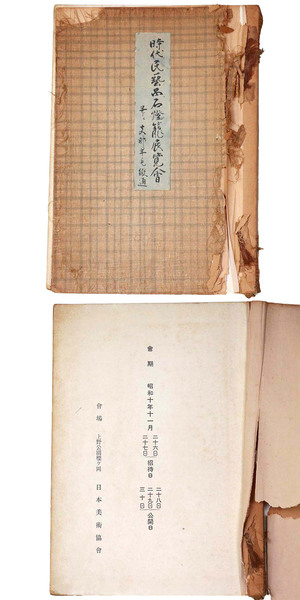 時代民藝品石燈籠展覧會
並ニ支那古毛緞通
會期 昭和十年十一月
二十六日
二十七日
招待日
二十八日
二十九日
三十日
公開日
會場 上野公園櫻ヶ岡 日本美術協會